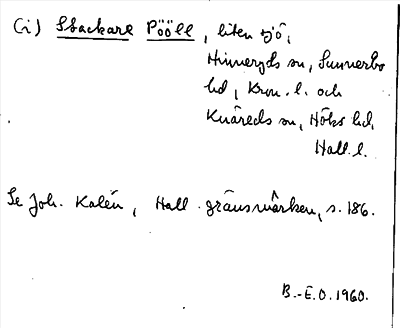 (i) Stackare Pööll, liten sjö,
Hinneryds sn, Sunnerbo
hd, Kron. l. och
Knäreds sn, Höks hd,
Hall. l.
Se Joh. Kalén, Hall. gränsmärken, s. 186.
B.-E.O. 1960.